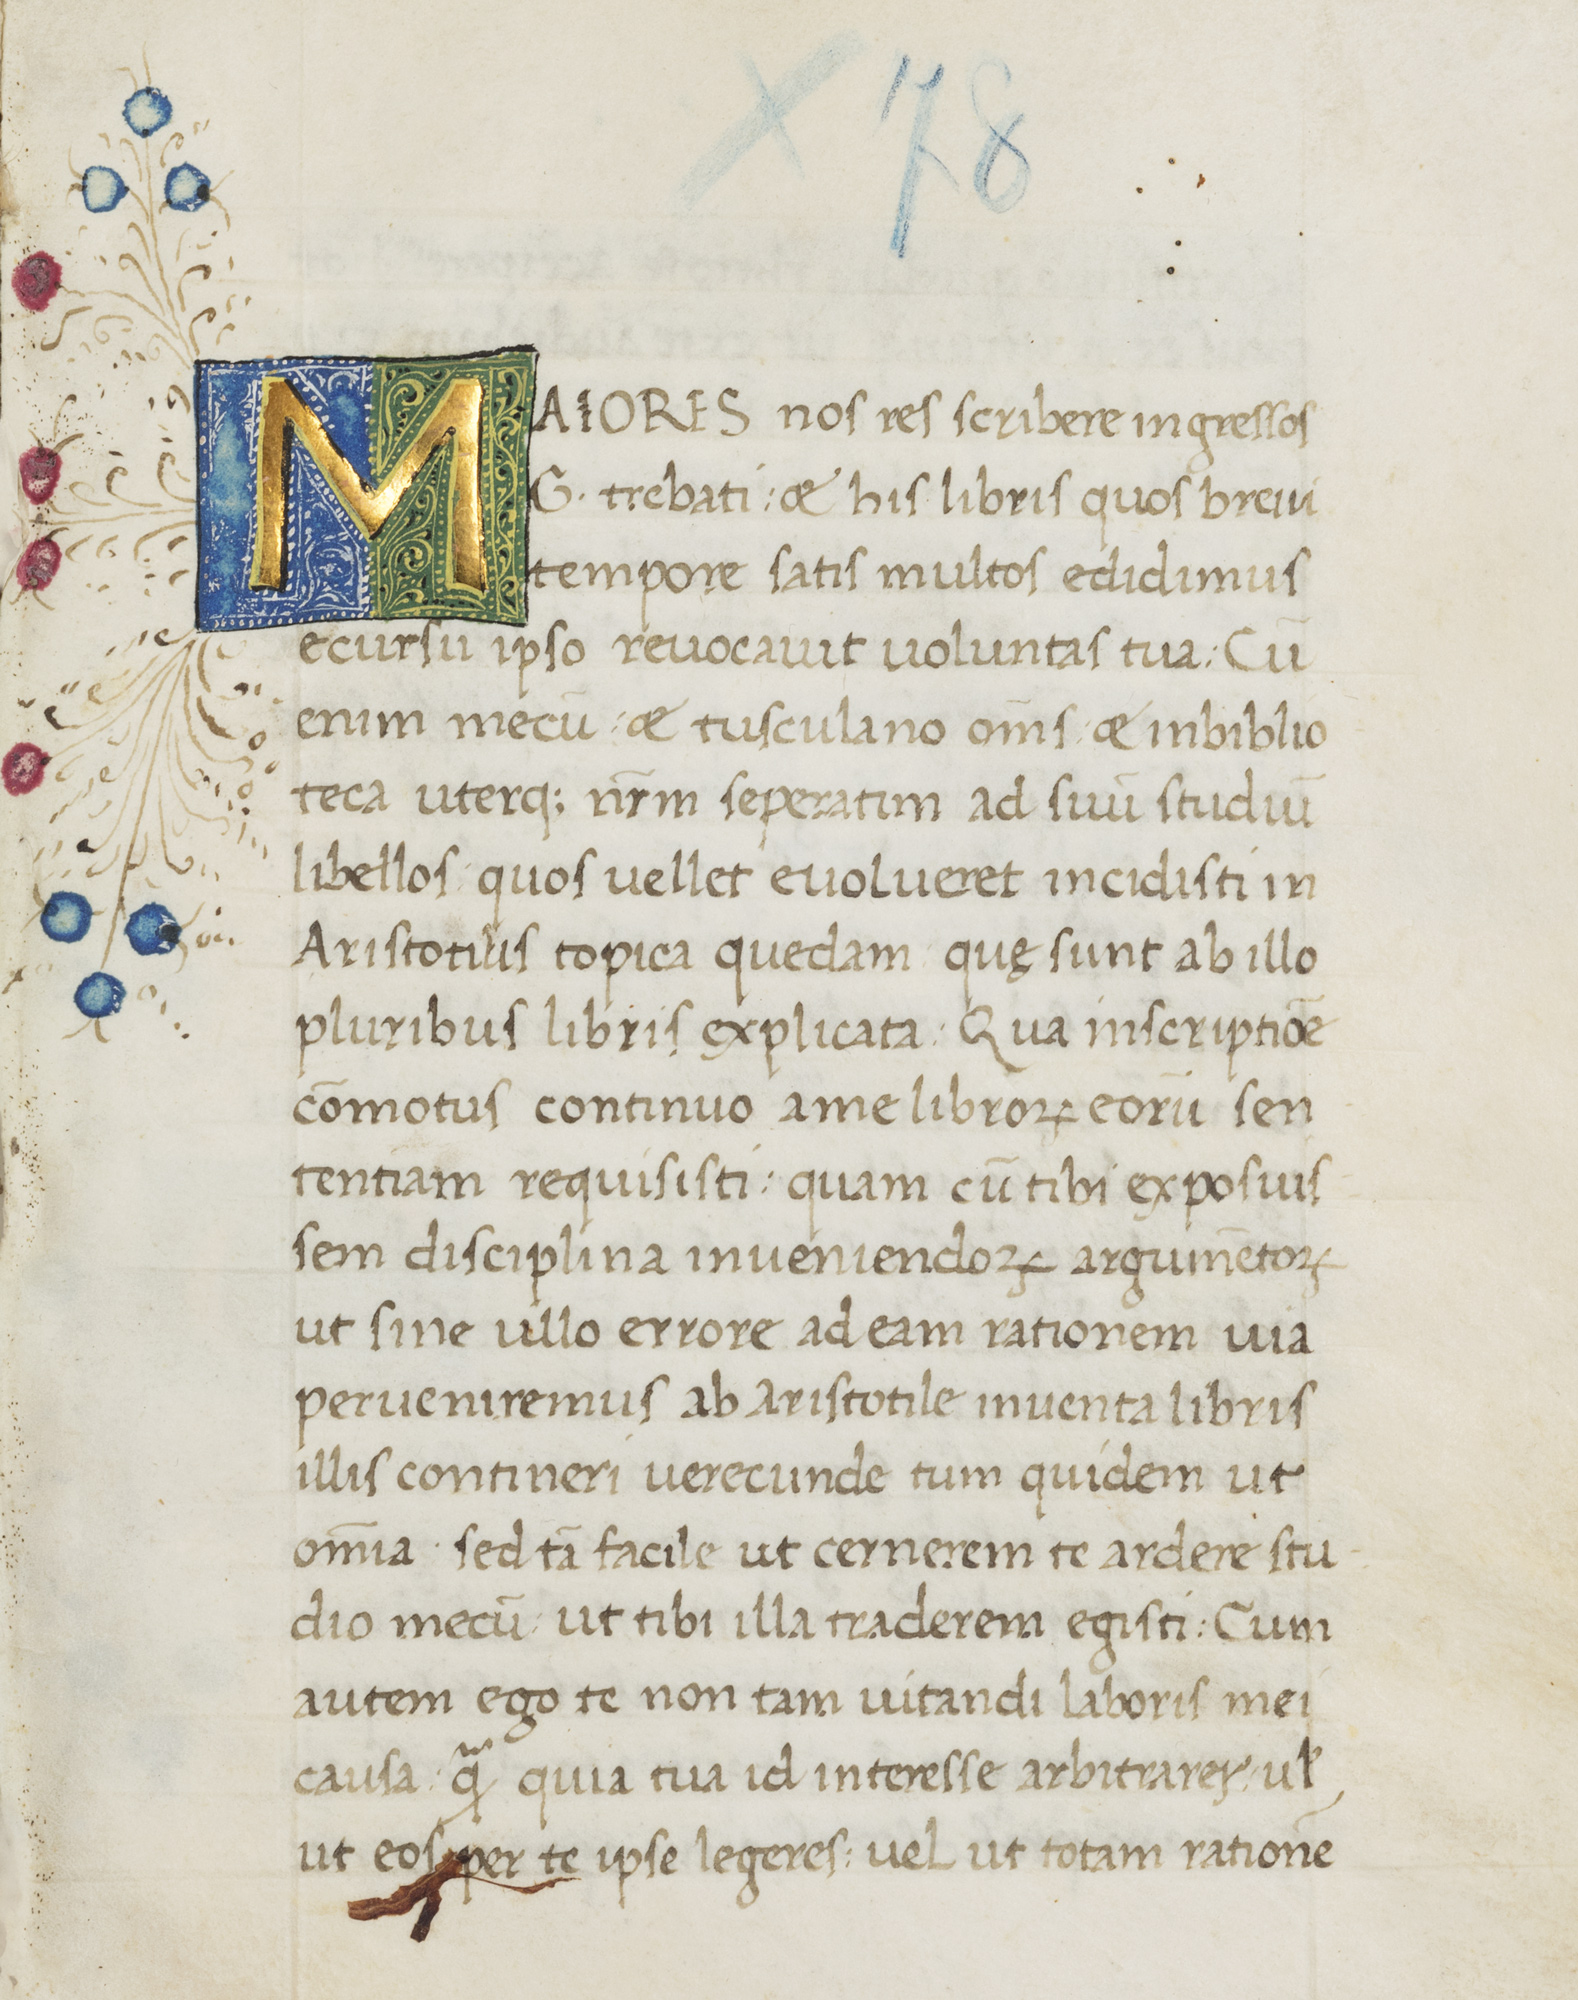 × 78
MAIORES nos res scribere ingressos
G. trebati : & his libris quos breui
tempore satis multos edidimus
ecursu ipso reuocauit uoluntas tua : Cū
enim mecū : & tusculano om̄s : & inbiblio
teca uterq; nr̄m seperatim ad suū studiū
libellos quos uellet euolueret incidisti in
Aristotilis topica quedam quę sunt ab illo
pluribus libris explicata : Qua inscriptiōe
cōmotus continuo ame libroꝝ eorū sen
tentiam requisisti : quam cū tibi exposuis
sem disciplina inueniendoꝝ argumētoꝝ
ut sine ullo errore ad eam rationem uia
perueniremus ab Aristotile inuenta libris
illis contineri uerecunde tum quidem ut
om̄ia · sed tā facile ut cernerem te ardere stu
dio mecū : ut tibi illa traderem egisti : Cum
autem ego te non tam uitandi laboris mei
causa : ꝙ quia tua id interesse arbitrarer : ul̓
ut eos per te ipse legeres : uel ut totam rationē